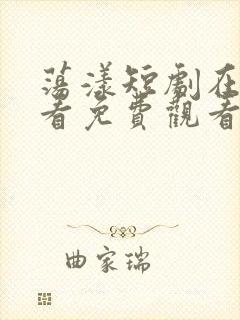 蕩漾短劇在
看免費觀看
曲家瑞